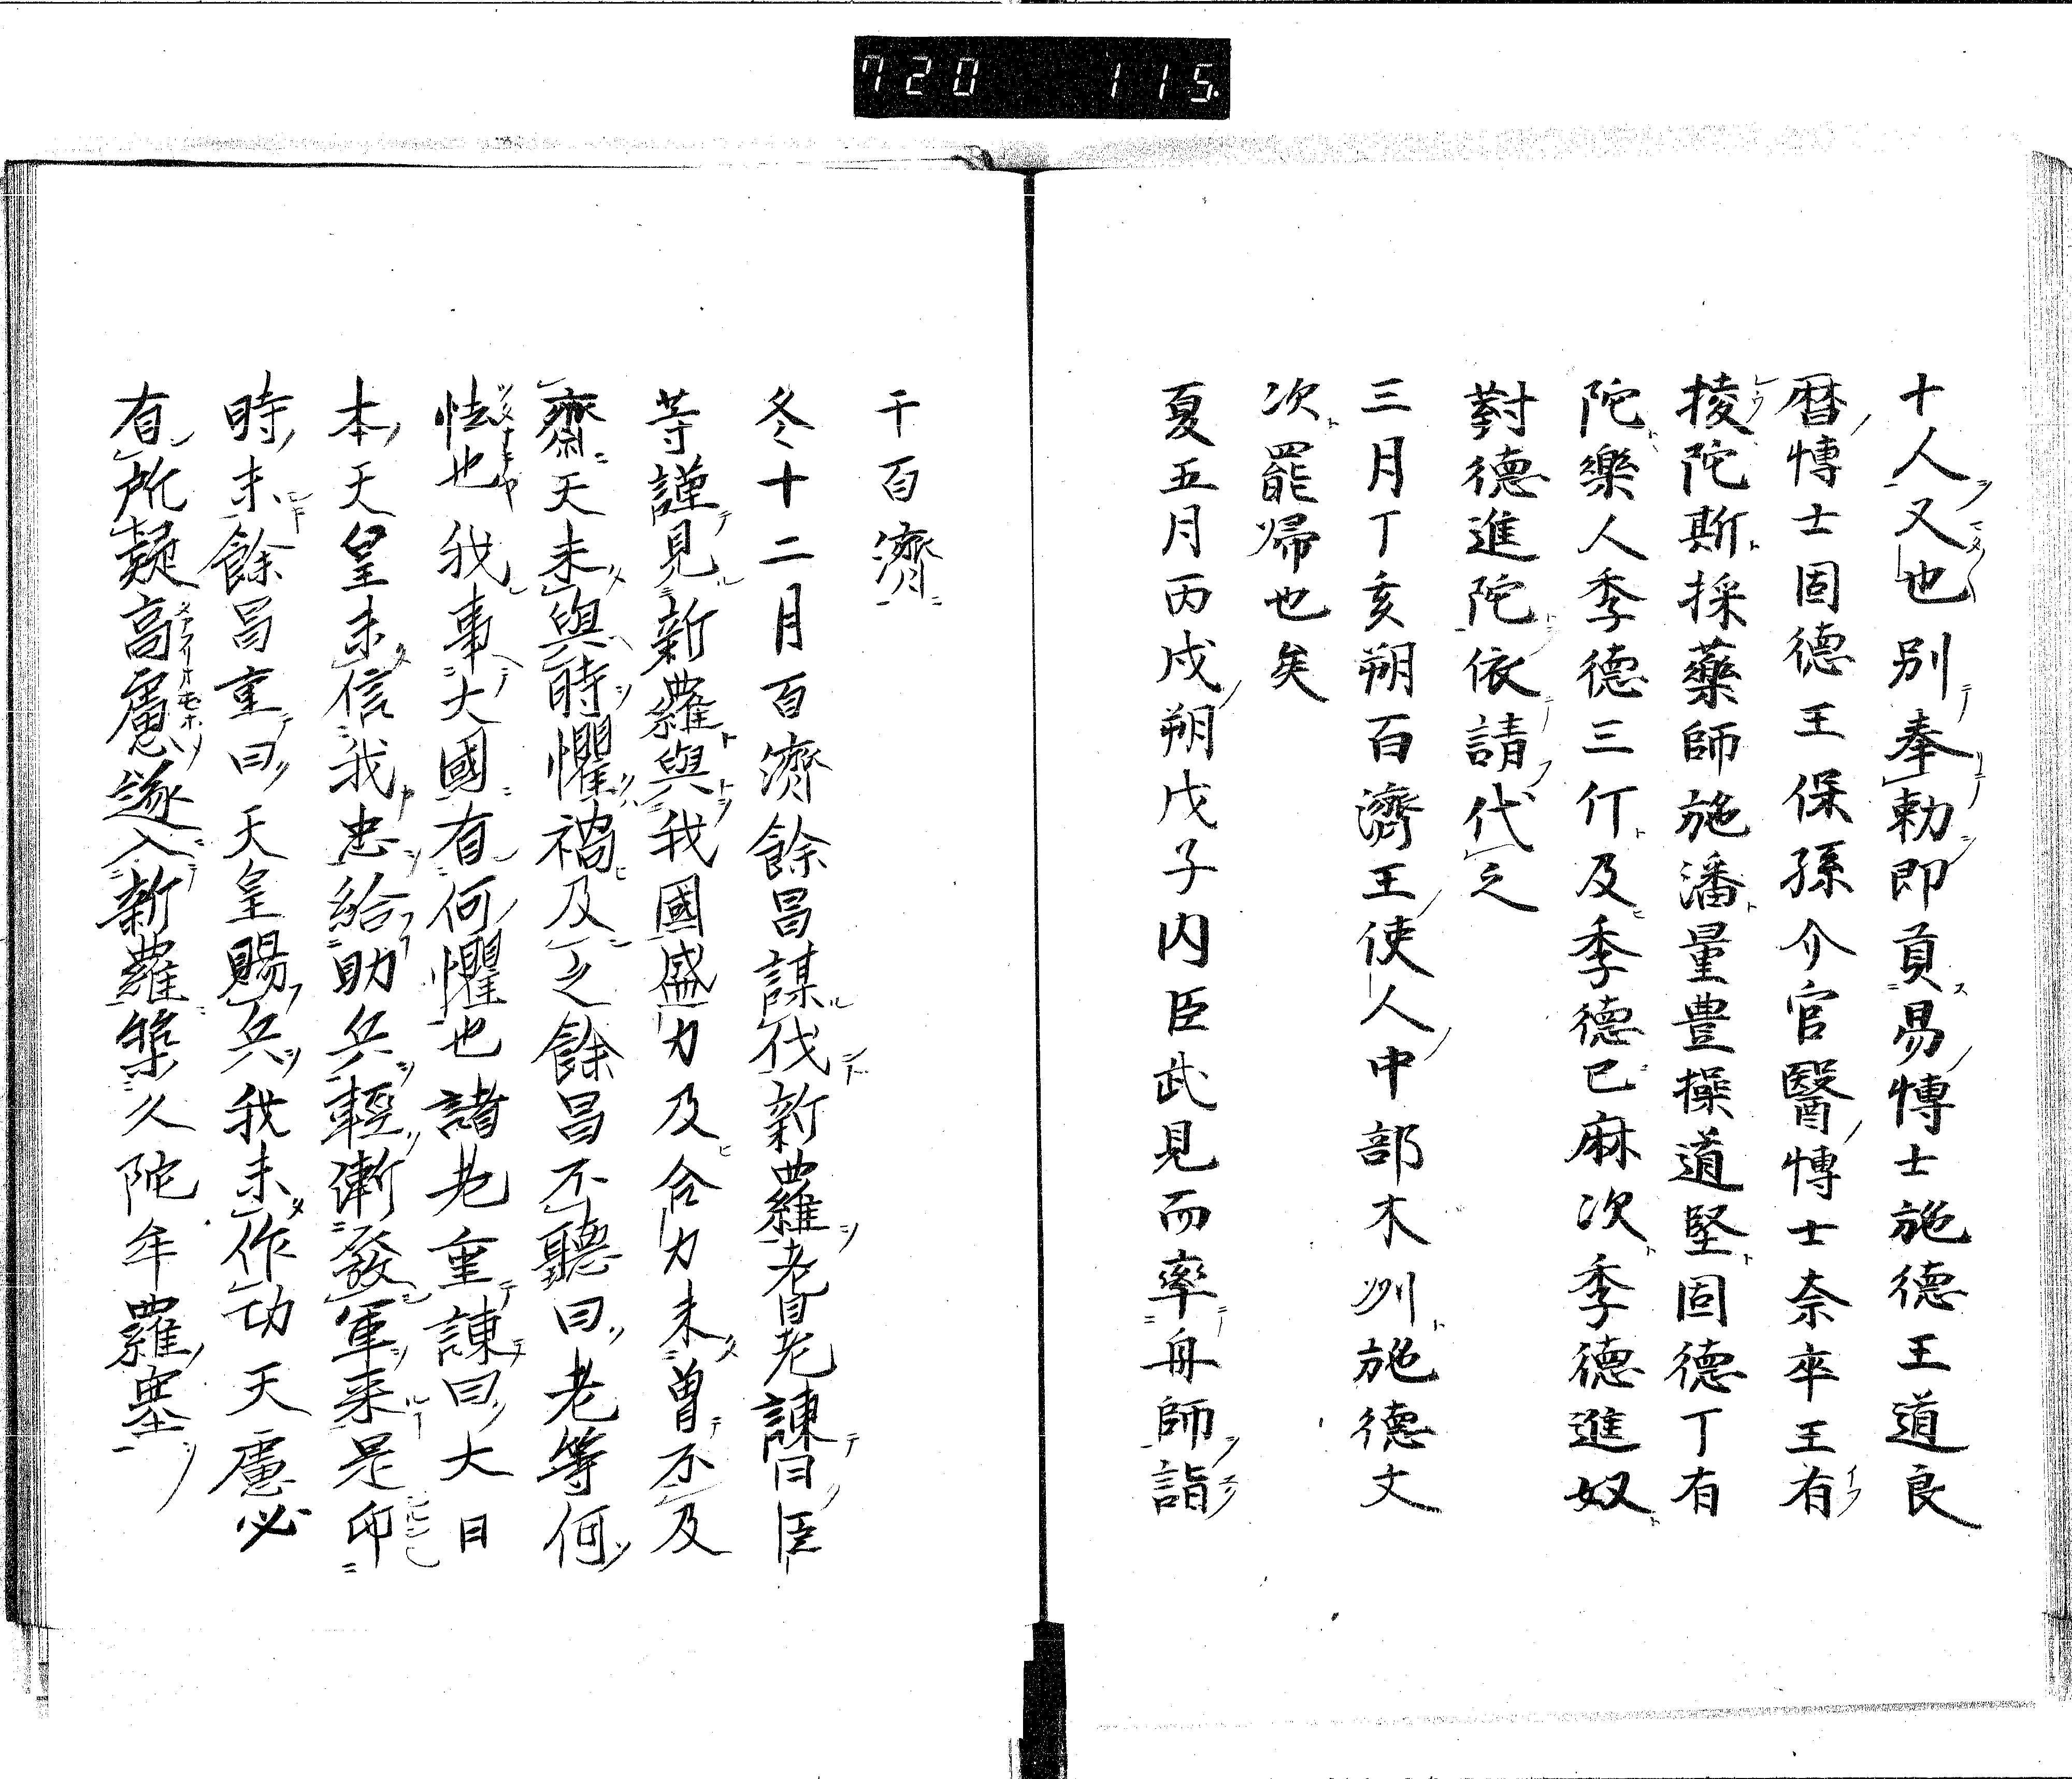 720 115
十人又也別奉勅即貢易愽士施德王道良
暦愽士固德王保孫介官醫愽士奈卒王有
㥄陀斯採藥師施潘量豊操道堅固德丁有
陀樂人季德三仃及季德已麻次季德進奴
對德進陀依請代之
三月丁亥朔百濟王使人中部木刕施德文
次罷帰也矣
夏五月丙戍朔戊子内臣武見而率舟師詣
干百濟
冬十二月百濟餘昌謀伐新羅耆老諫曰臣
等謹見新羅與我國盛力及合力未曽不及
齋天未與時懼禍及之餘昌不聽曰老等何
怯也我事大國有何懼也諸老重諫曰大日
本天皇未信我忠給助兵輕漸發軍来是
時未餘昌重曰天皇賜兵我未作功天慮必
有所疑高慮遂入新羅築久陀牟羅塞